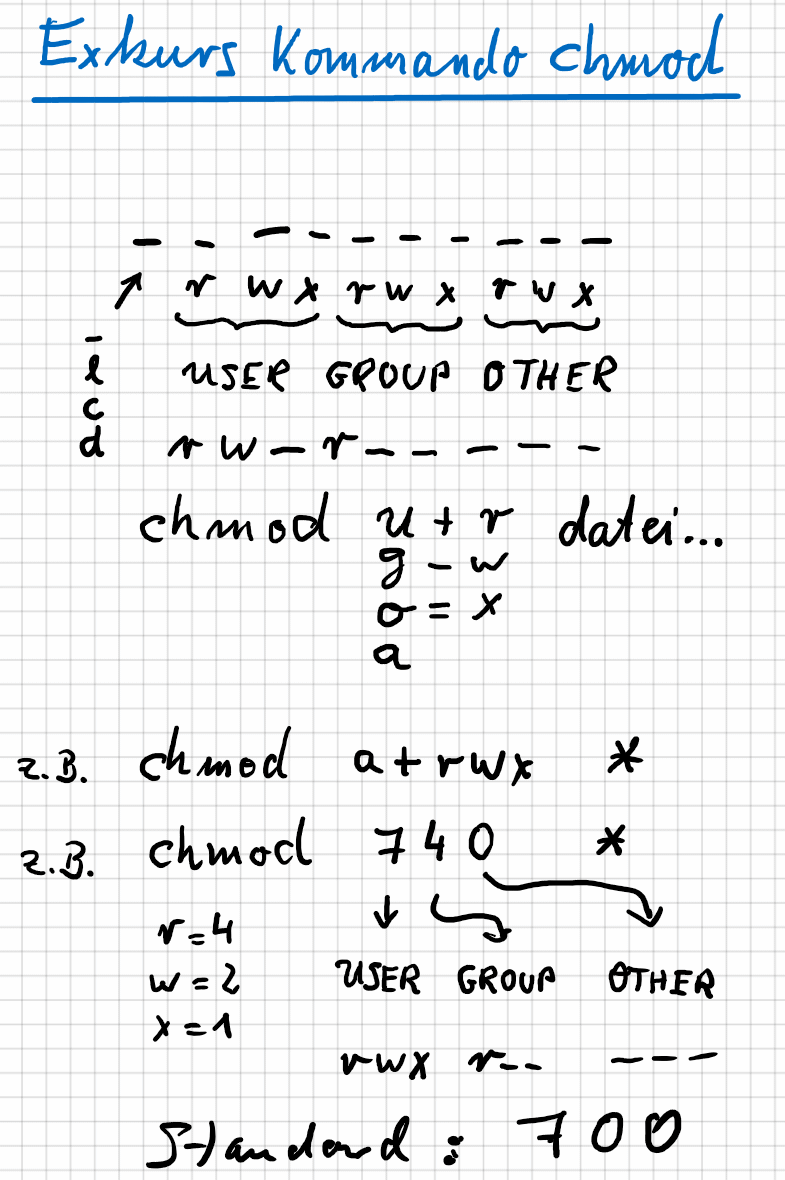 Exkurs Kommando chmod
- - - - - - - - - -
r w x r w x r w x
-
l
c
d
USER GROUP OTHER
r w - r - - - - -
chmod u + r datei...
g - w
o = x
a
z.B. chmod a+rwx *
z.B. chmod 740 *
r=4
w=2
x=1
USER GROUP OTHER
rwx r-- ---
Standard: 700